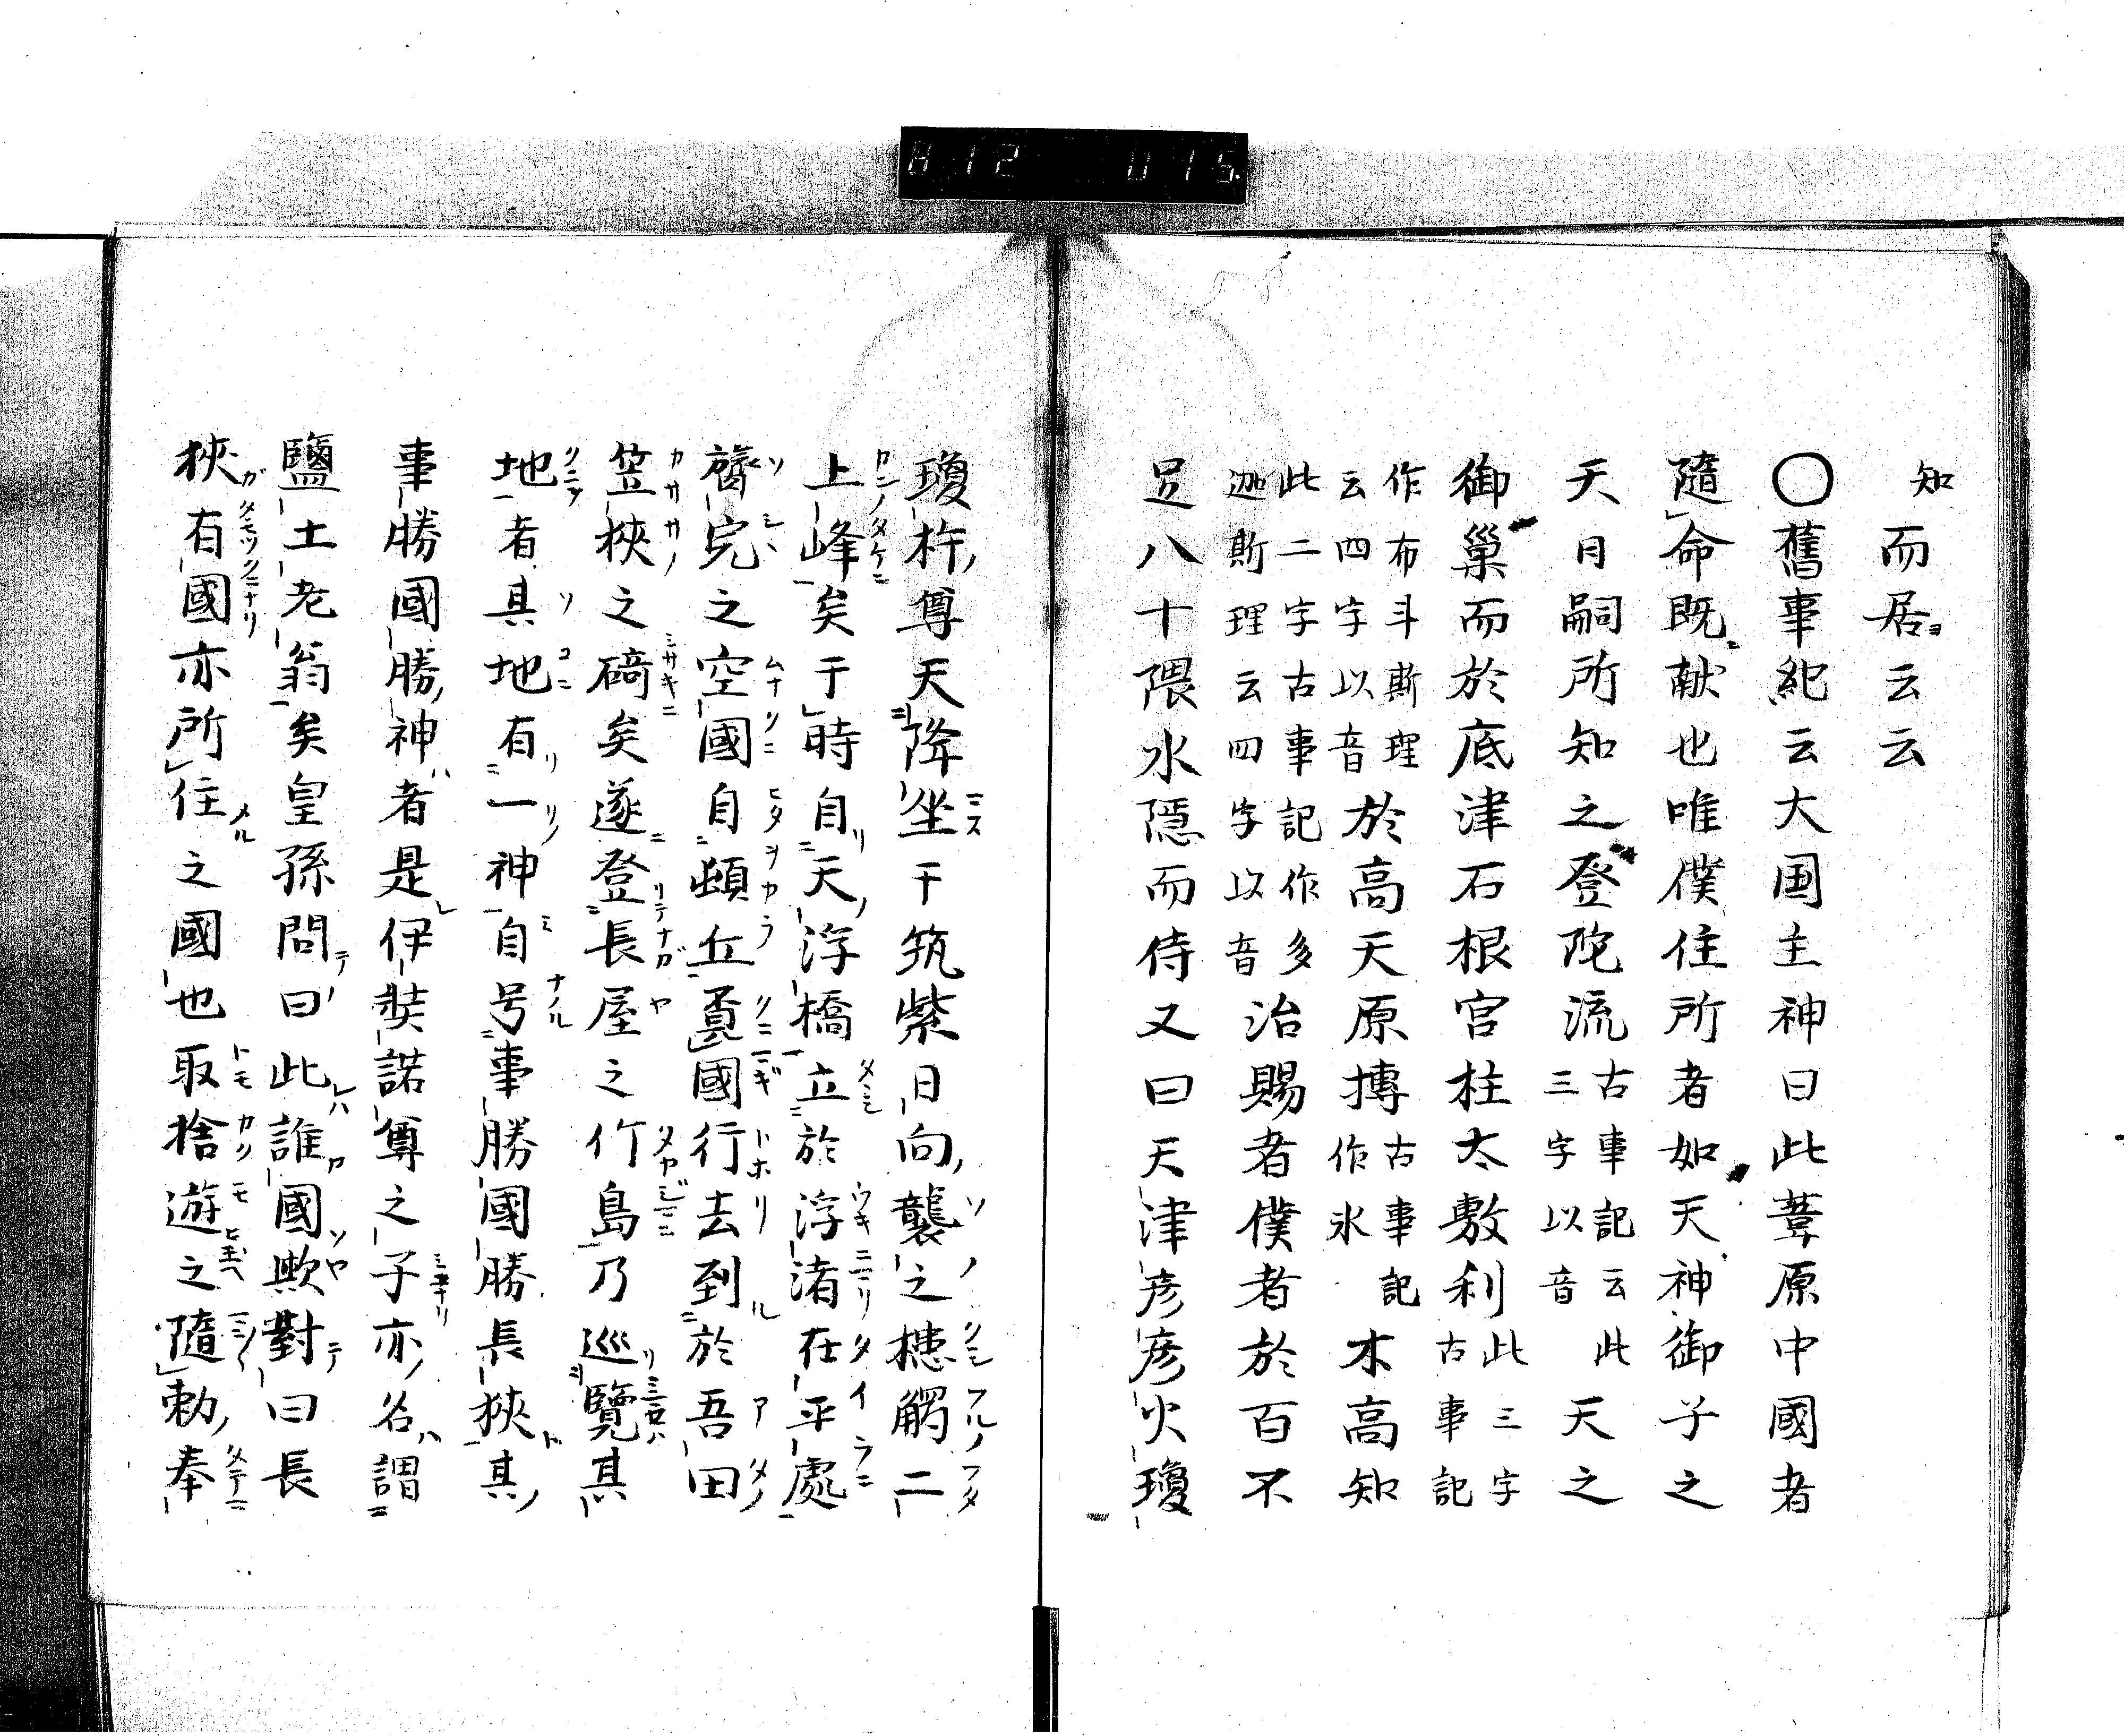 知而居云云
〇舊事紀云大国主神曰此葦原中國者
隨命既献也唯僕住所者如天神御子之
天日嗣所知之登陀流古事記云此三字以音天之
御巢而於底津石根宮柱太敷利此三字古事記
作布斗斯理云四字以音於高天原搏古事記作氷木高知
此二字古事記作多迦斯理云四字以音治賜者僕者於百不
足八十隈水隱而侍又曰天津彦彦火瓊
瓊杵尊天降坐于筑紫日向襲之槵觸二
上峰矣于時自天浮橋立於浮渚在平處
膂宍之空國自頓丘覓國行去到於吾田
笠狹之碕矣遂登長屋之竹島乃巡覽其
地者其地有一神自号事勝國勝長狹其
事勝國勝神者是伊奘諾尊之子亦名謂
鹽土老翁矣皇孫問曰此誰國歟對曰長
狹有國亦所住之國也取捨遊之隨勅奉
812 015